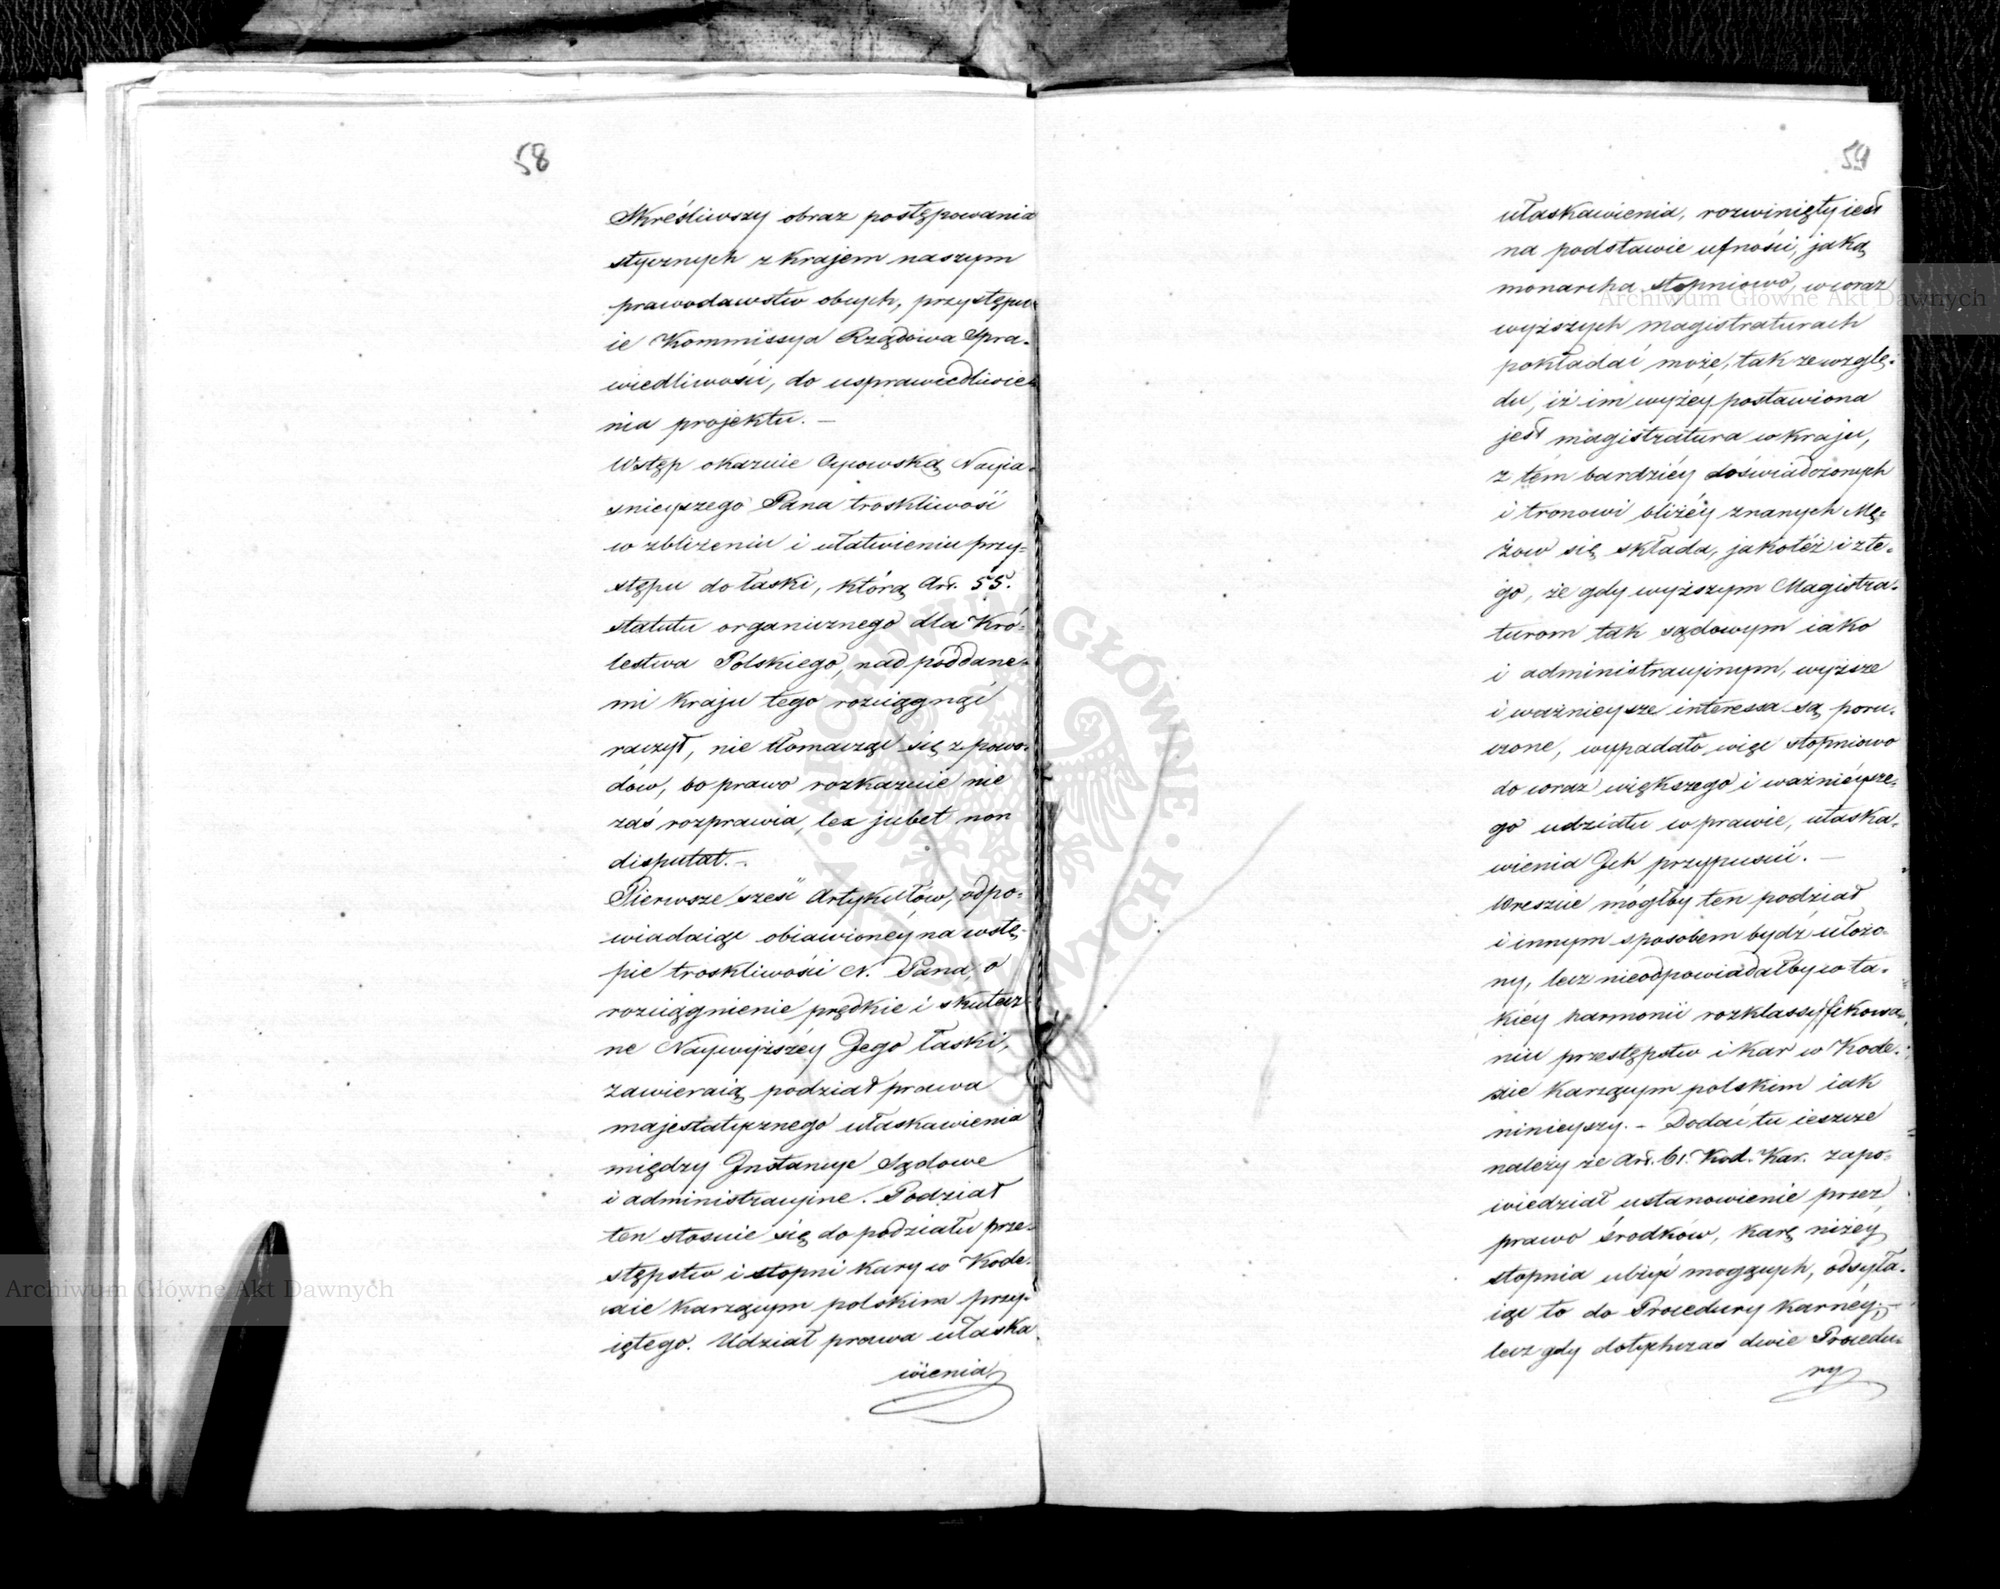 58
Skreśliwszy obraz postępowania
stycznych z krajem naszym
prawodawstw obcych, przystępu
ie Kommissya Rządowa Spra-
wiedliwości, do usprawiedliwie-
nia projektu. —
Wstęp okazuie Oycowską Nayia-
snieyszego Pana troskliwość
w zbliżeniu i ułatwieniu przy-
stępu do łaski, którą Art. 55.
statutu organicznego dla Kró-
lestwa Polskiego, nad poddane-
mi kraju tego rozciągnąć
raczył, nie tłomacząc się z powo-
dów, bo prawo rozkazuie nie
zaś rozprawia, lex jubet non
disputat. -
Pierwsze sześć Artykułów, odpo-
wiadaiąc obiawioney na wstę-
pie troskliwości N. Pana, o
rozciągnienie prędkie i skutecz-
ne Naywyższéy Jego łaski,
zawieraią podział prawa
majestatycznego ułaskawienia
między Instancye Sądowe
i administracyine. Podział
ten stosuie się do podziału prze-
stępstw i stopni kary w Kode-
xie karzącym polskim przy-
iętego. Udział prawa ułaska
wienia
59
ułaskawienia, rozwinięty iest
na podstawie ufności, jaką
monarcha stopniowo, w coraz
wyższych magistraturach
pokładać może, tak ze wzglę-
du, iż im wyżéy postawiona
jest magistratura w kraju,
z tém bardziéy doświadczonych
i tronowi bliżéy znanych Mę-
żow się składa, jakotéż i z te-
go, że gdy wyższym Magistra-
turom tak sądowym iako
i administracyinym, wyższe
i ważnieysze interessa są poru-
czone, wypadało więc stopniowo
do coraz większego i ważniéysze-
go udziału w prawie, ułaska-
wienia Ich przypuścić. —
Wreszcie mógłby ten podział
i innym sposobem bydź ułożo-
ny, lecz nieodpowiadałby co ta-
kiéy harmonii rozklassyfikowa-
niu przestępstw i kar w Kode-
xie karzącym polskim iak
ninieyszy. - Dodać tu ieszcze
należy że Art. 61. Kod. Kar. zapo-
wiedział ustanowienie przez
prawo środków, karę niżéy
stopnia ulżyć mogących, odsyła-
iąc to do Procedury karnéy, -
lecz gdy dotychczas dwie Procedu-
ry
Archiwum Główne Akt Dawnych
Archiwum Główne Akt Dawnych
ARCHIWUM GŁÓWNE AKT DAWNYCH